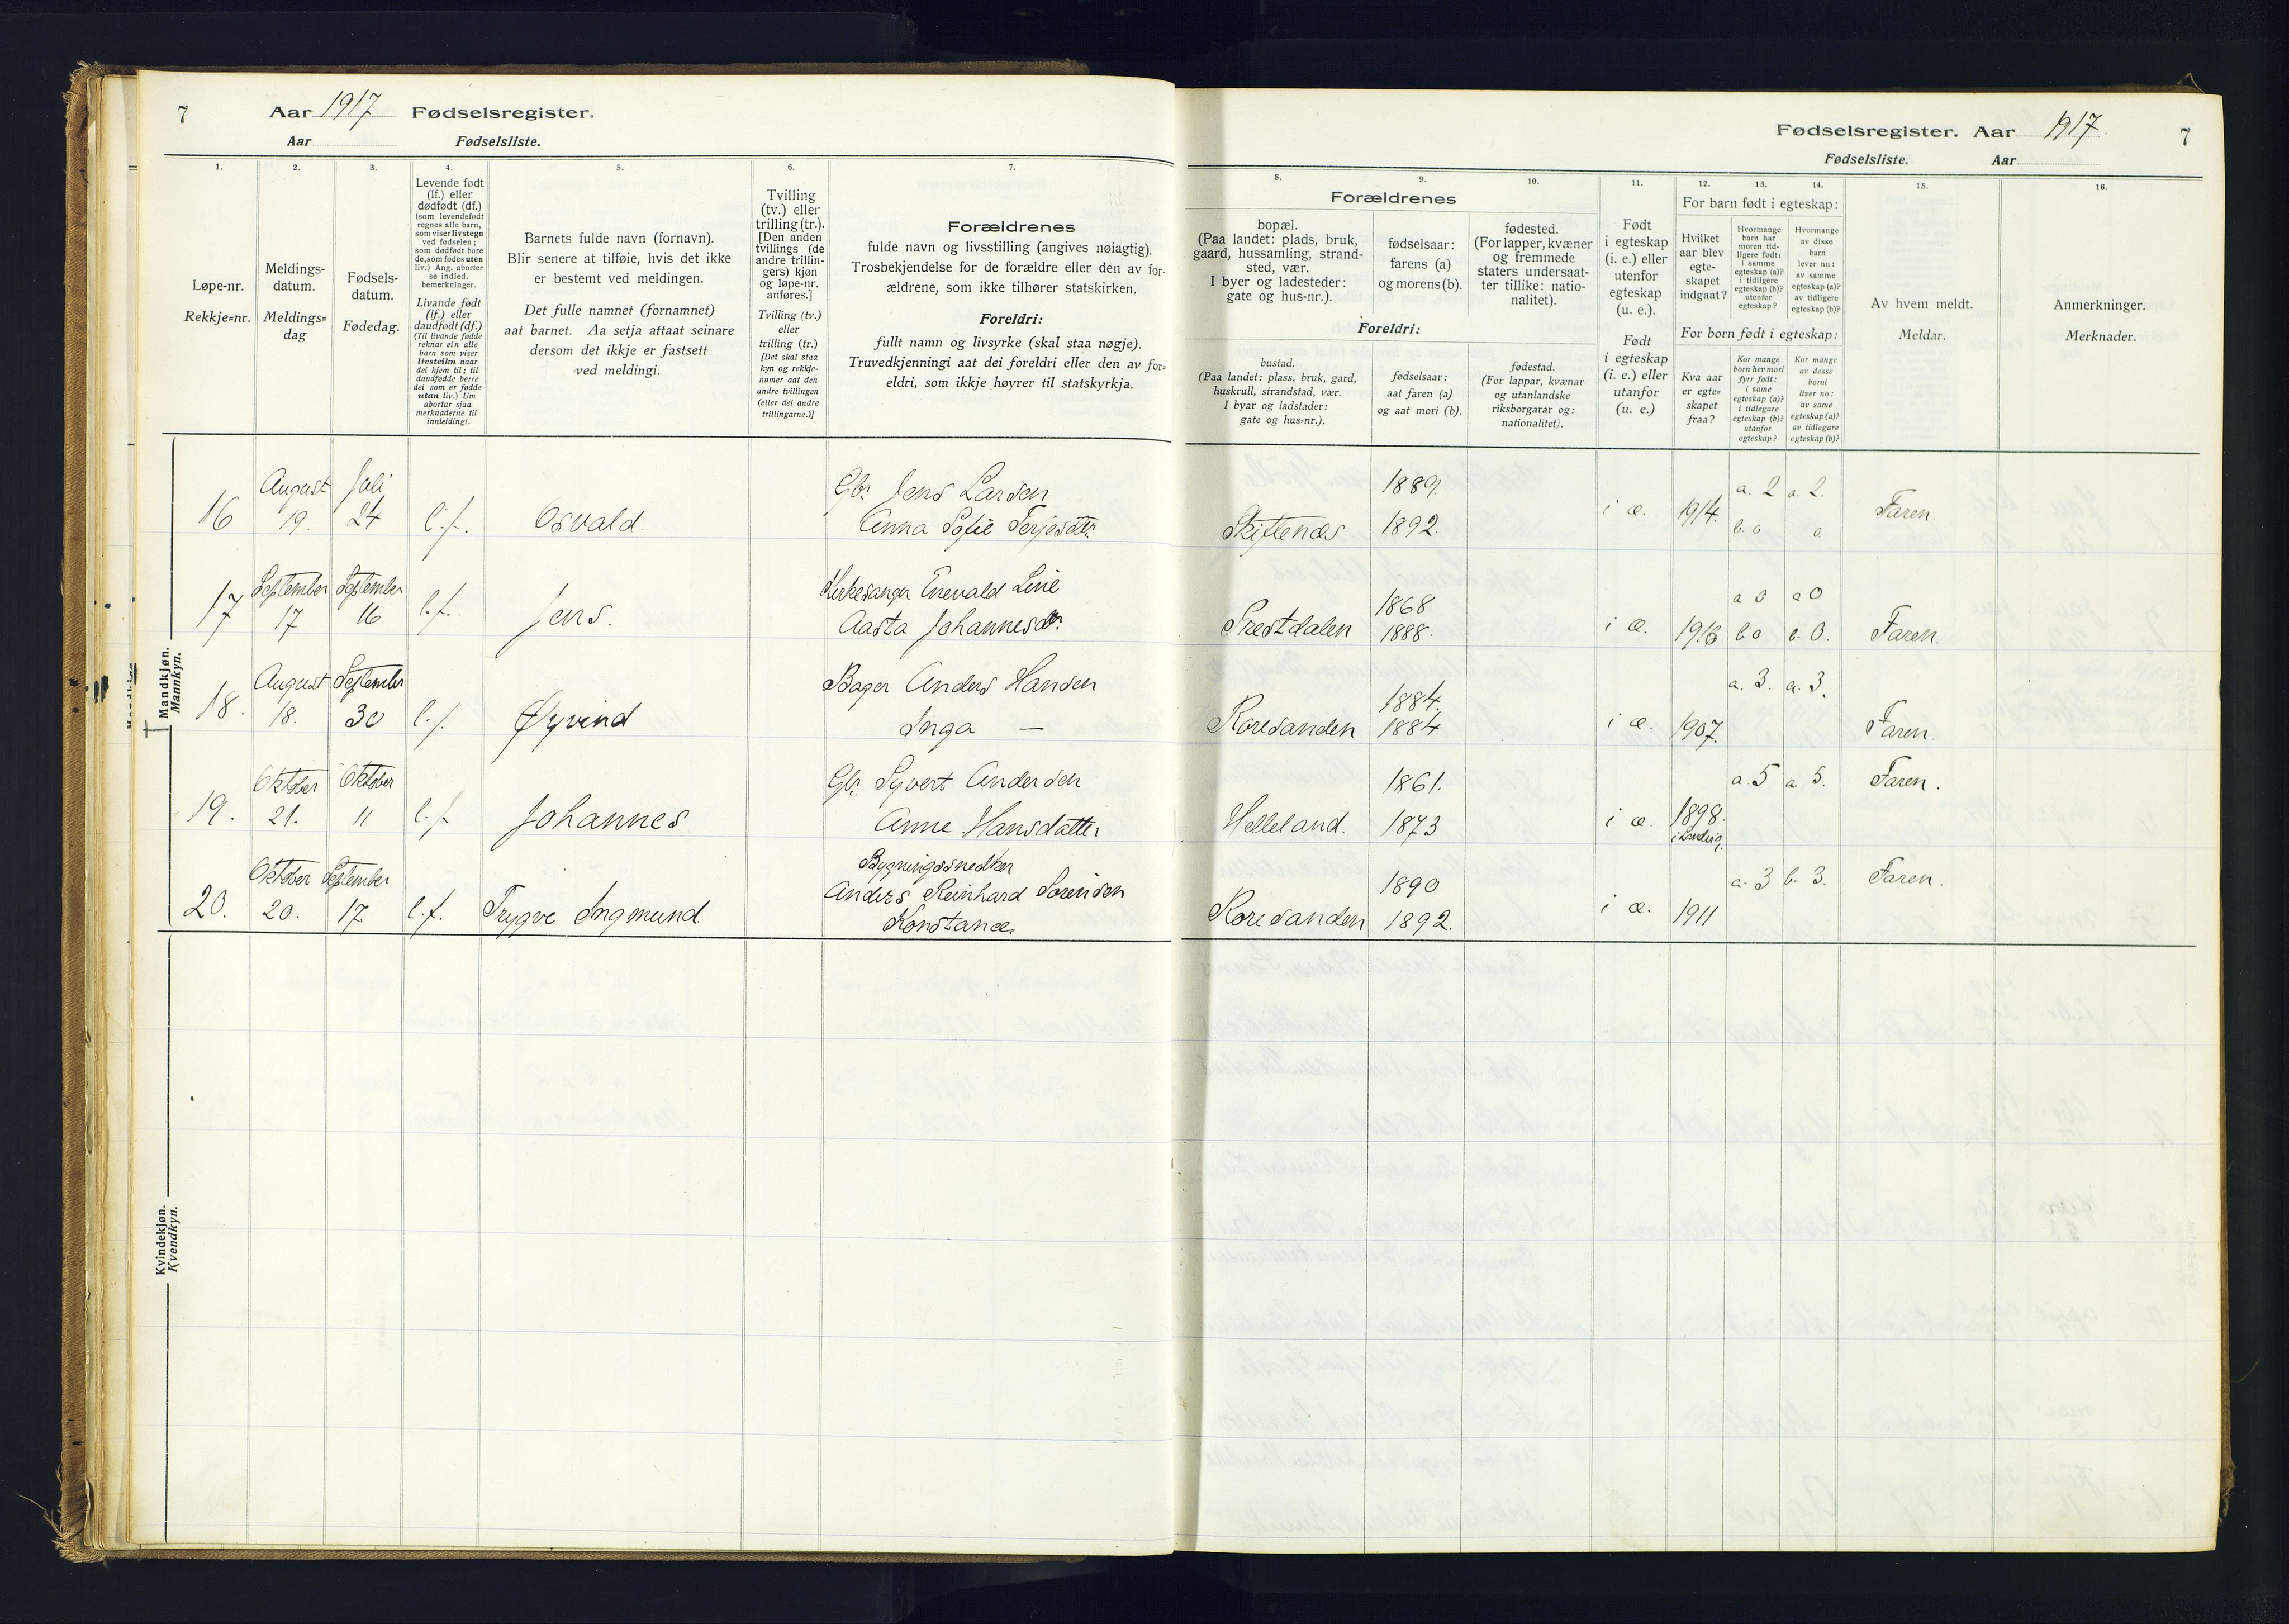 7
Aar 1917 Fødselsregister.
Aar Fødselsliste.
1.
2.
3.
4.
5.
6.
7.
Løpe-nr.
Rekkje=nr.
Meldings-
datum.
Meldings=
dag
Fødsels-
datum.
Fødedag.
Levende født
(lf.) eller
dødfødt (df.)
(som levendefødt
regnes alle barn,
som viser livstegn
ved fødselen;
som dødfødt bare
de, som fødes uten
liv.) Ang. aborter
se indled.
bemerkninger.
Livande født
(lf.) eller
daudfødt (df.)
(Til livande fødde
reknar ein alle
barn som viser
livsteikn naar
dei kjem til; til
daudfødde berre
dei som er fødde
utan liv.) Um
abortar sjaa
merknaderne til
innleidingi.
Barnets fulde navn (fornavn).
Blir senere at tilføie, hvis det ikke
er bestemt ved meldingen.
Det fulle namnet (fornamnet)
aat barnet. Aa setja attaat seinare
dersom det ikkje er fastsett
ved meldingi.
Tvilling
(tv.) eller
trilling (tr.).
[Den anden
tvillings (de
andre trillin-
gers) kjøn
og løpe-nr.
anføres.]
Tvilling (tv.)
eller
trilling (tr.)
[Det skal staa
kyn og rekkje-
numer aat den
andre tvillingen
(eller dei andre
trillingarne.)]
Forældrenes
fulde navn og livsstilling (angives nøiagtig).
Trosbekjendelse for de forældre eller den av for-
ældrene, som ikke tilhører statskirken.
Foreldri:
fullt namn og livsyrke (skal staa nøgje).
Truvedkjenningi aat dei foreldri eller den av for=
eldri, som ikkje høyrer til statskyrkja.
Mandkjøn.
Mannkyn.
16 August 19. Juli 24 l.f. Osvald. Gbr. Jens Larsen
Anna Sofie Terjesdtr.
17 September 17 September 16 l.f. Jens. Kirkesanger Enevald Lene
Aasta Johannesdtr.
18. August 18. September 30 l.f. Øyvind Bager Anders Hansen
Inga —
19. Oktober 21. Oktober 11 l.f. Johannes Gbr. Syvert Andersen
Anne Hansdatter
20. Oktober 20. September 17 l.f. Trygve Ingmund. Bygningssnedker
Anders Reinhard Sørensen
Konstance.
Kvindekjøn.
Kvendkyn.
Fødselsregister. Aar 1917. 7
Fødselsliste. Aar
8.
9.
10.
11.
12.
13.
14.
15.
16.
Forældrenes
bopæl.
(Paa landet: plads, bruk,
gaard, hussamling, strand-
sted, vær.
I byer og ladesteder:
gate og hus-nr.).
fødselsaar:
farens (a)
og morens (b).
fødested.
(For lapper, kvæner
og fremmede
staters undersaat-
ter tillike: natio-
nalitet).
Foreldri:
bustad.
(Paa landet: plass, bruk, gard,
huskrull, strandstad, vær.
I byar og ladstader:
gate og hus=nr.).
fødselsaar:
aat faren (a)
og aat mori (b).
fødestad.
(For lappar, kvænar
og utanlandske
riksborgarar og:
nationalitet).
Født
i egteskap
(i. e.) eller
utenfor
egteskap
(u. e.).
Født
i egteskap
(i. e.) eller
utanfor
(u. e.)
For barn født i egteskap:
Hvilket
aar blev
egte-
skapet
indgaat?
Hvormange
barn har
moren tid-
ligere født:
i samme
egteskap (a)?
i tidligere
egteskap (b)?
utenfor
egteskap?
Hvormange
av disse
barn
lever nu:
av samme
egteskap (a)?
av tidligere
egteskap (b)?
For born født i egteskap:
Kva aar
er egte=
skapet
fraa?
Kor mange
born hev mori
fyrr født:
i same
egteskap (a)?
i tidlegare
egteskap (b)?
utanfor
egteskap?
Kor mange
av desse
borni
liver no:
av same
egteskap (a)?
av tidlegare
egteskap (b)?
Av hvem meldt.
Meldar.
Anmerkninger.
Merknader.
Skiftenes 1889. 1892. i æ. 1914. a. 2 b. 0 a. 2. 0. Faren.
Prestdalen 1868 1888. i æ. 1916 a 0 b. 0 a 0 b. 0. Faren.
Roresanden 1884. 1884 i æ. 1907. a. 3. a. 3. Faren.
Helleland. 1861. 1873 i æ. 1898. i Landvig. a. 5 a. 5. Faren.
Roresanden 1890 1892. i æ. 1911 a. 3 b. 3. Faren.